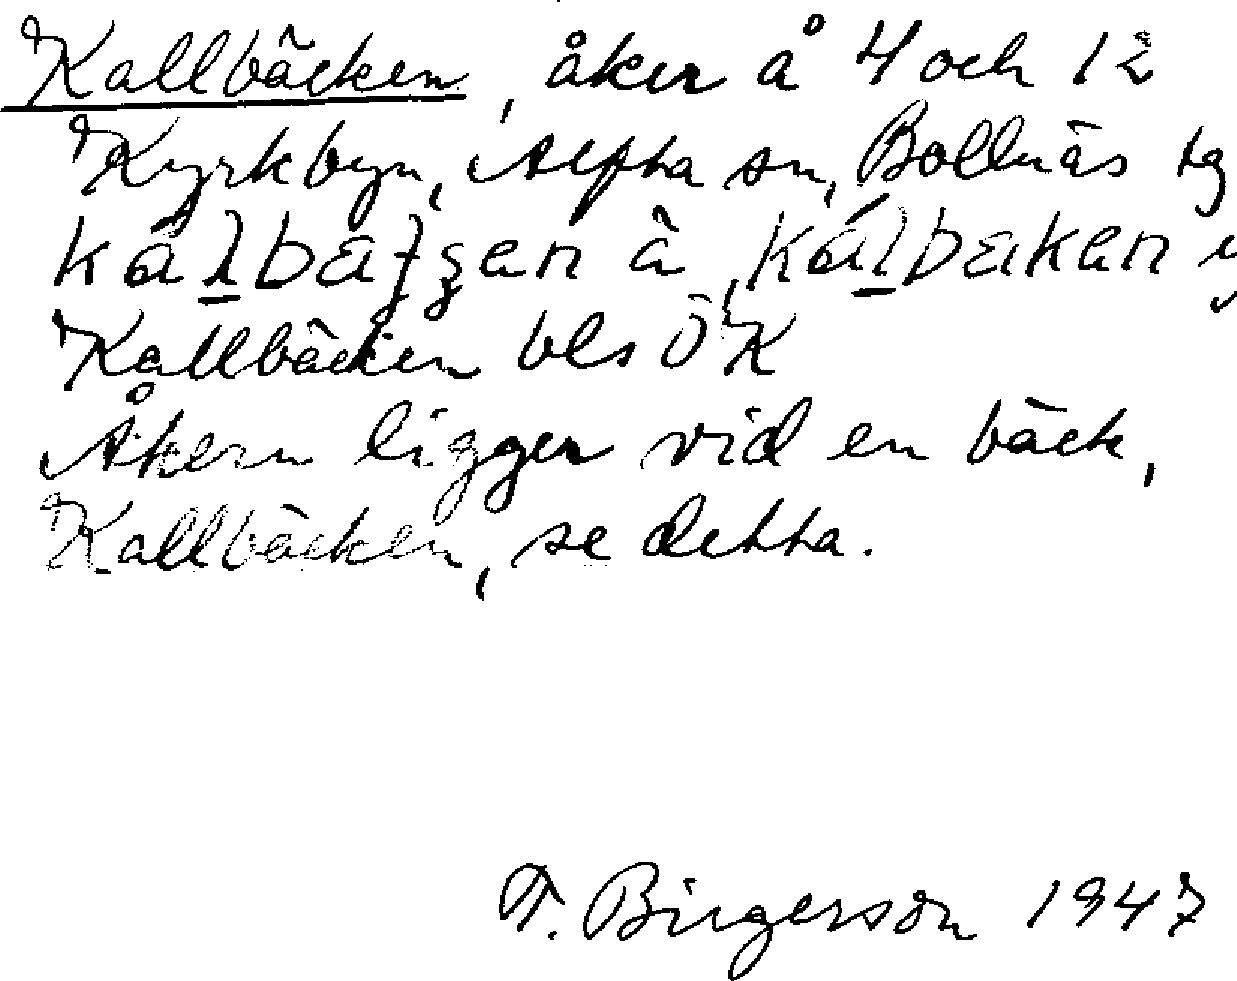 Kallbäcken, åker å 4 och 12
Kyrkbyn, Alfta sn, Bollnäs tg
Kallbäcken bls ÖK
Åkern ligger vid en bäck,
Kallbäcken, se detta.
T. Birgerson 1947